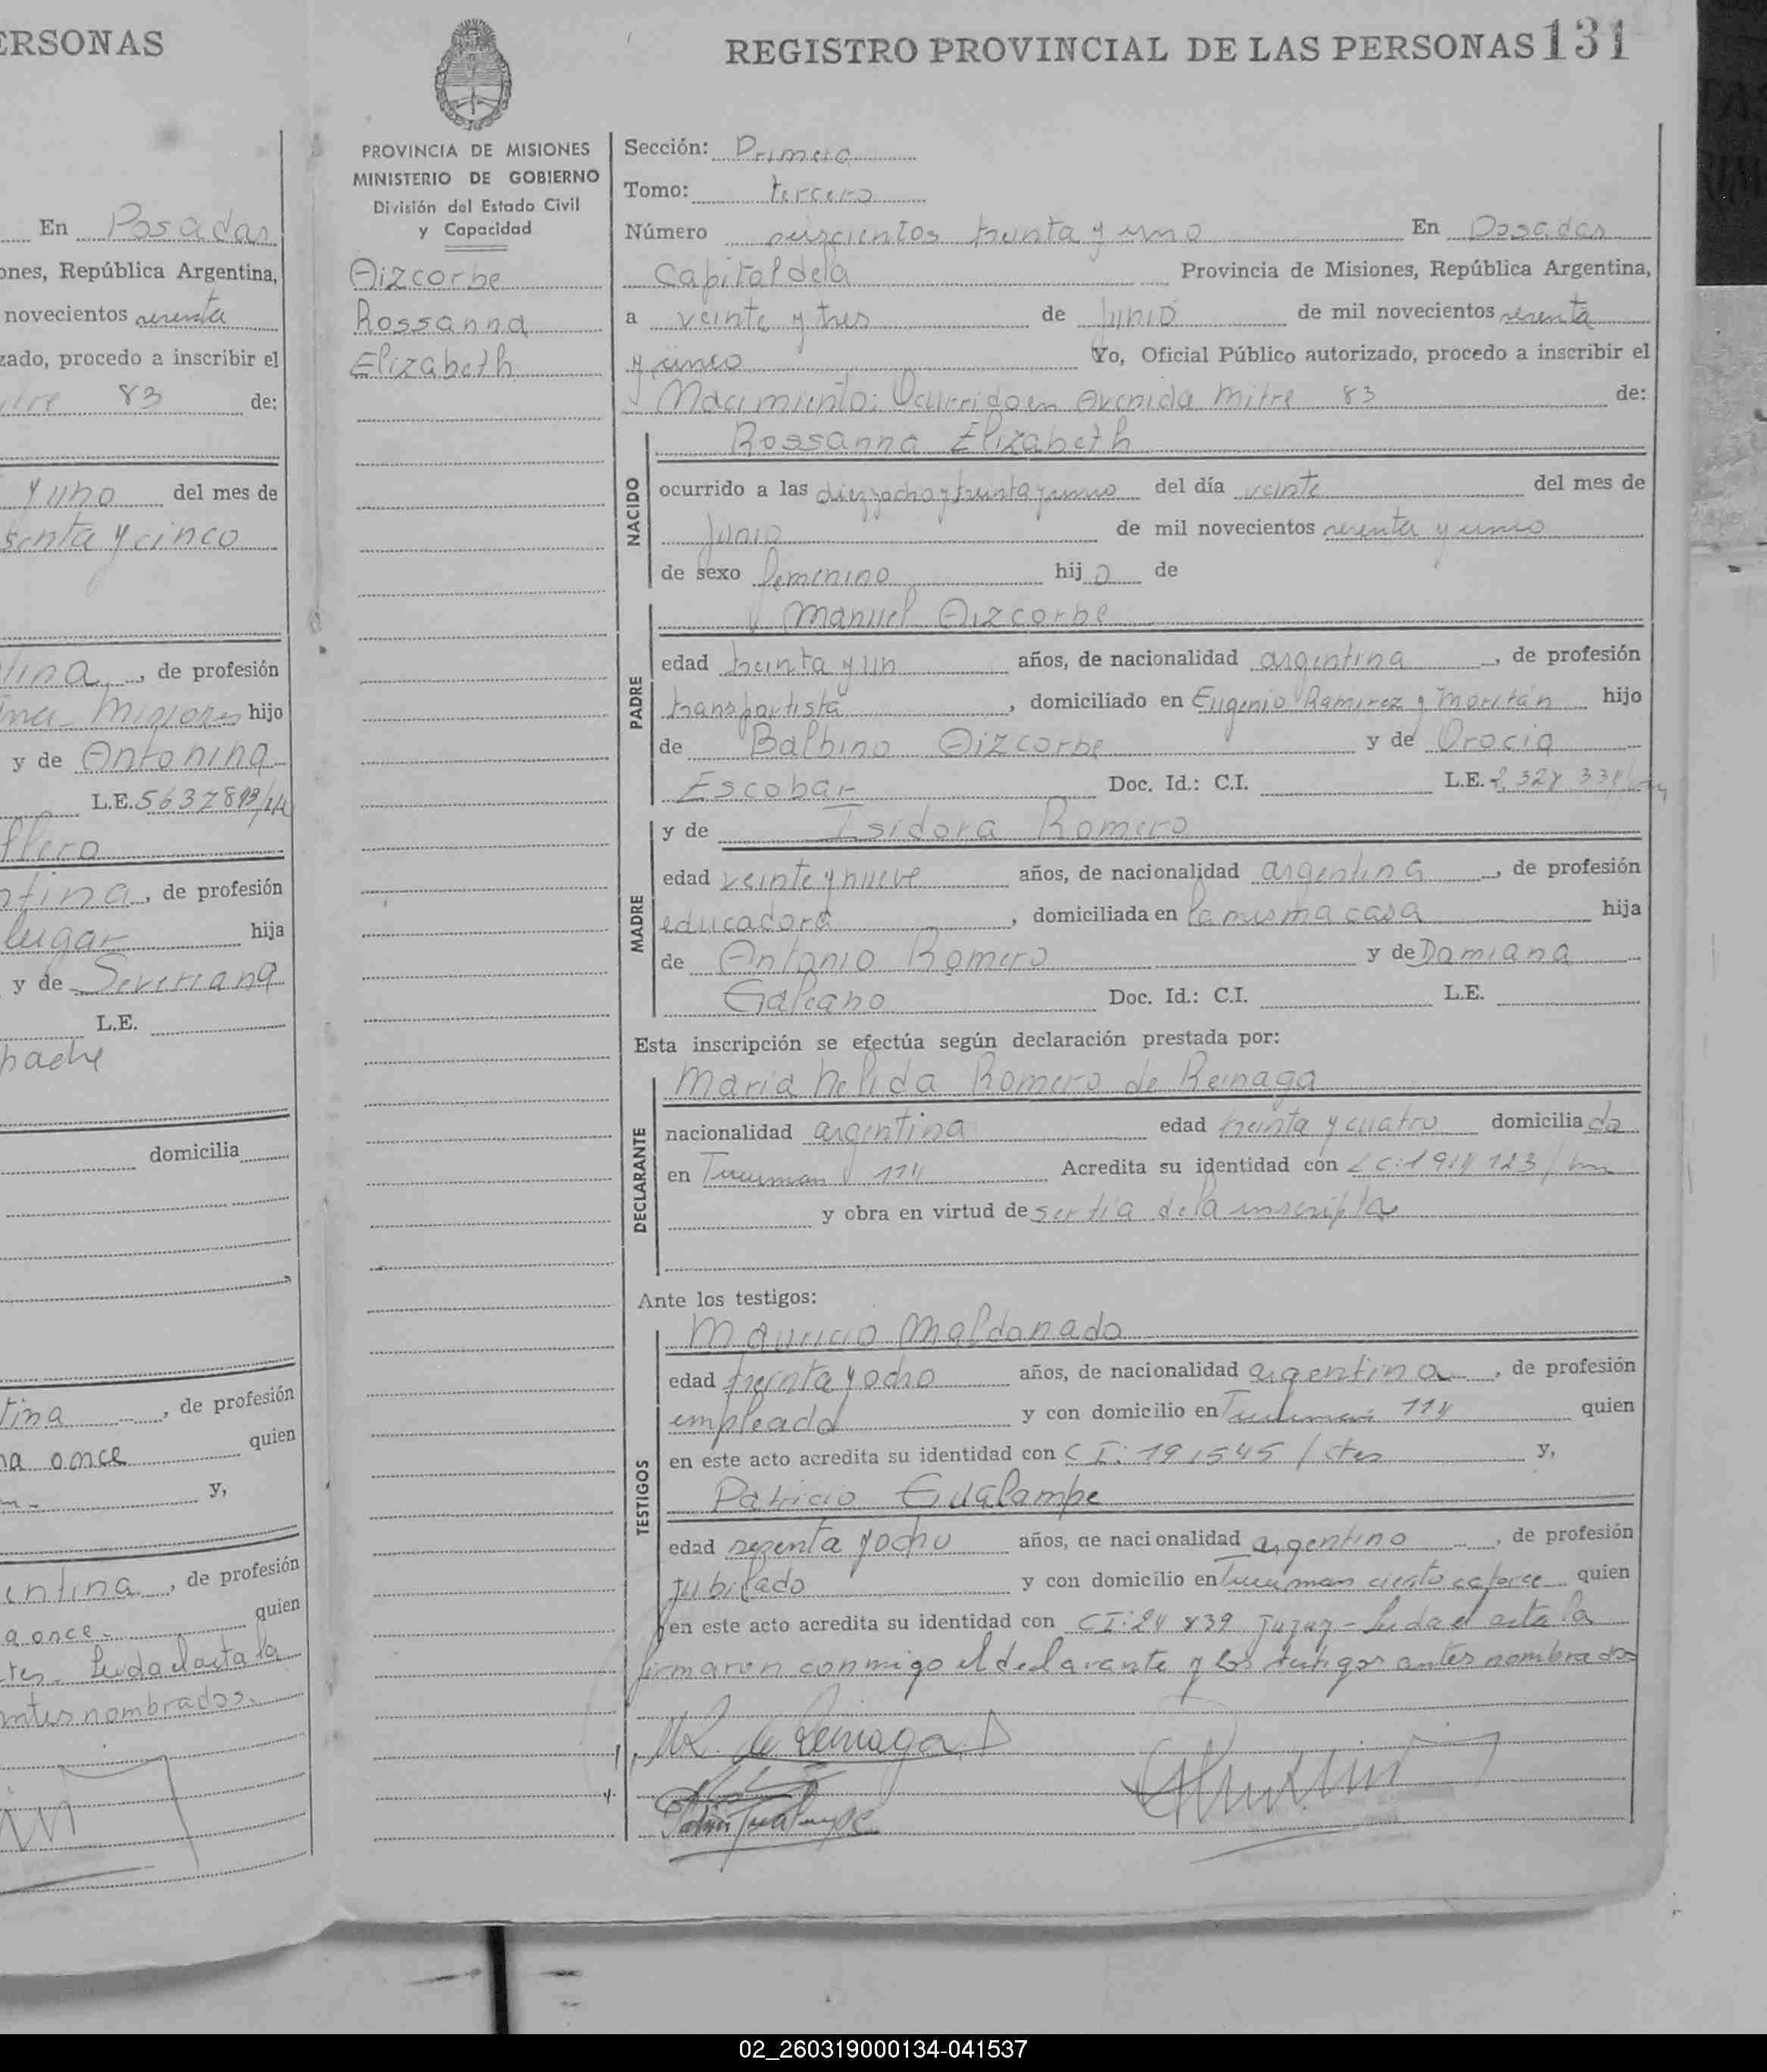 ERSONAS
En Posadas
ones, República Argentina,
novecientos sesenta
zado, procedo a inscribir el
itre 83 de:
y uno del mes de
senta y cinco
tina, de profesión
hijo
y de Antonina
L.E.
ntina, de profesión
lugar hija
y de Severiana
L.E.
padre
domicilia
tina, de profesión
na once quien
y,
entina, de profesión
a once. quien
tes. Leida el acta la
antes nombrados.
PROVINCIA DE MISIONES
MINISTERIO DE GOBIERNO
División del Estado Civil
y Capacidad
Aizcorbe
Rossanna
Elizabeth
REGISTRO PROVINCIAL DE LAS PERSONAS 131
Sección: Primera
Tomo: tercero
Número seiscientos treinta y uno En Posadas
Capital de la Provincia de Misiones, República Argentina,
a veinte y tres de Junio de mil novecientos sesenta
y cinco Yo, Oficial Público autorizado, procedo a inscribir el
Nacimiento: Ocurrido en Avenida Mitre 83 de:
NACIDO
Rossanna Elizabeth
ocurrido a las diez y ocho y treinta y cinco del día veinte del mes de
Junio de mil novecientos sesenta y cinco
de sexo femenino hij a de
PADRE
Manuel Aizcorbe
edad treinta y un años, de nacionalidad argentina, de profesión
transportista, domiciliado en Eugenio Ramirez y Moritán hijo
de Balbino Aizcorbe y de Orocia
Escobar Doc. Id.: C.I. L.E.
MADRE
y de Isidora Romero
edad veinte y nueve años, de nacionalidad argentina, de profesión
educadora, domiciliada en la misma casa hija
de Antonio Romero y de Damiana
Galeano Doc. Id.: C.I. L.E.
Esta inscripción se efectúa según declaración prestada por:
DECLARANTE
Maria Nelida Romero de Reinaga
nacionalidad argentina edad treinta y cuatro domicilia da
en Tucuman 114 Acredita su identidad con
y obra en virtud de ser tía de la inscripta
Ante los testigos:
TESTIGOS
Mauricio Maldonado
edad treinta y ocho años, de nacionalidad argentina, de profesión
empleado y con domicilio en Tucuman 114 quien
en este acto acredita su identidad con C I: 191545 / Ctes y,
Patricio Gualampe
edad sesenta y ocho años, de nacionalidad argentino, de profesión
jubilado y con domicilio en Tucuman ciento catorce quien
en este acto acredita su identidad con CI: 24 839 Jujuy - Leida el acta la
firmaron conmigo el declarante y los testigos antes nombrados
02_260319000134-041537